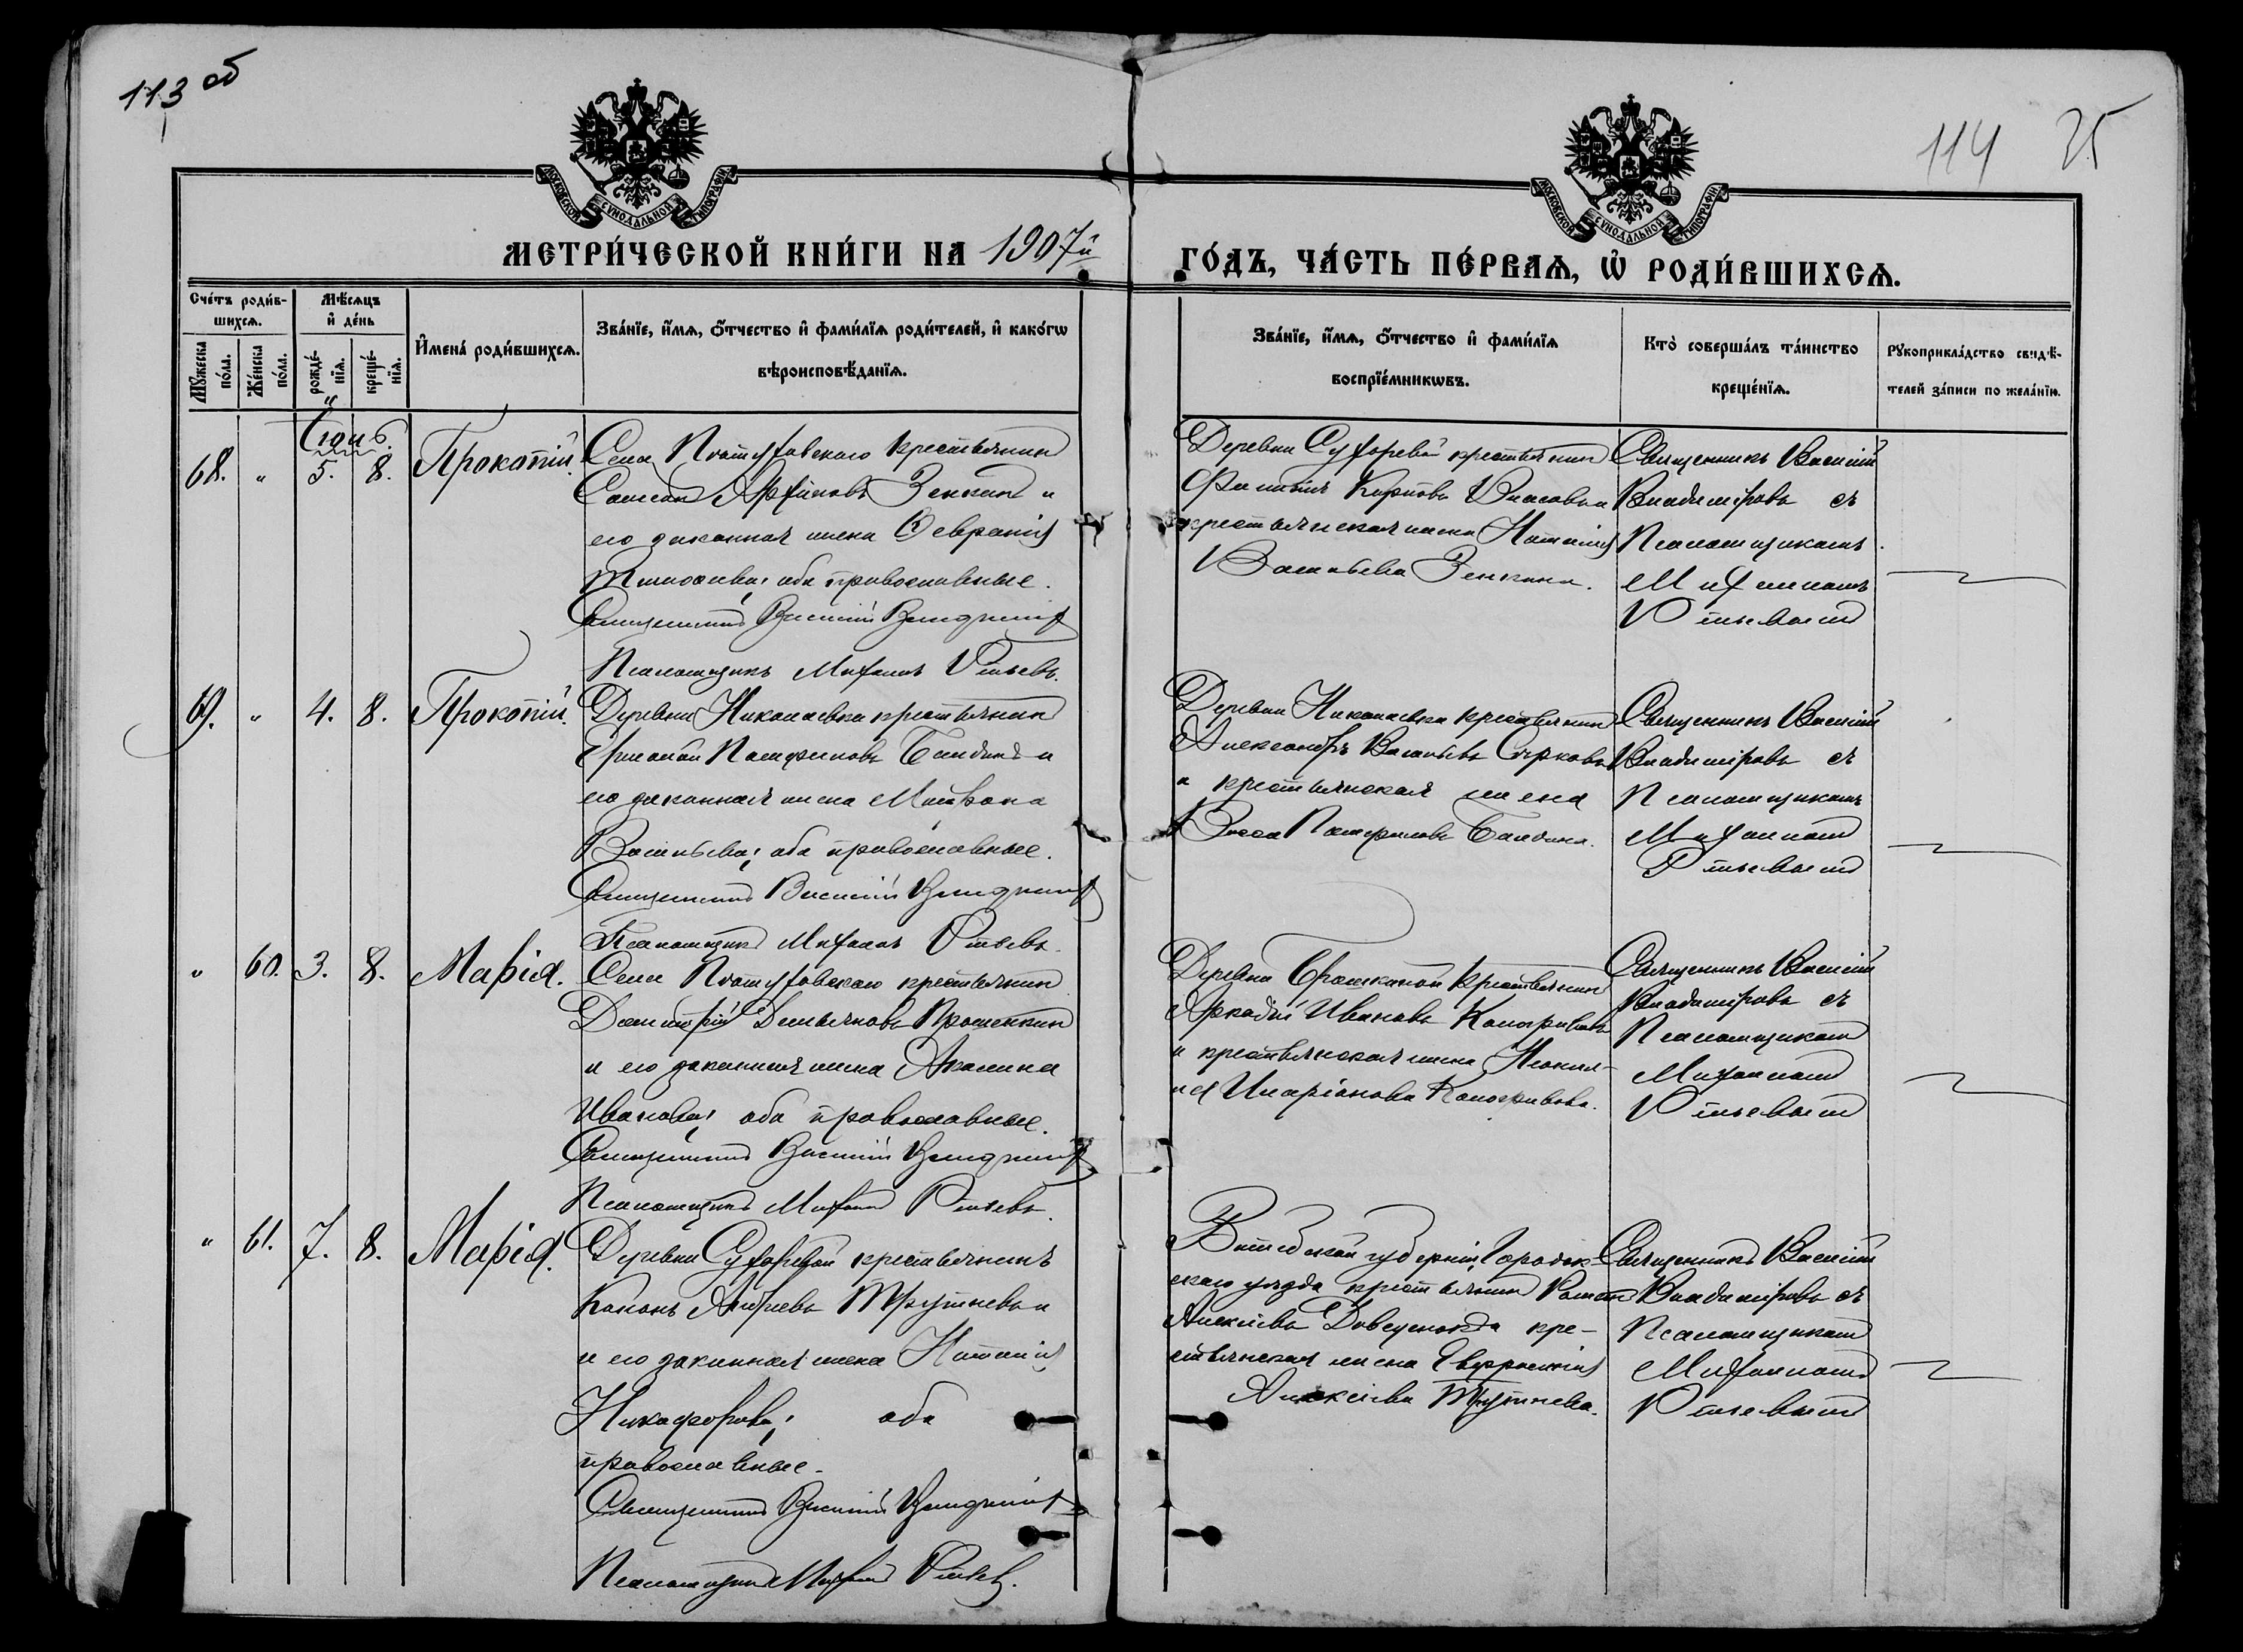 113 об
114 25
МОСКОВСКОЙ СУНОДАЛЬНОЙ ТИПОГРАФІИ
МОСКОВСКОЙ СУНОДАЛЬНОЙ ТИПОГРАФІИ
МЕТРИ́ЧЕСКОЙ КНИ́ГИ НА 1907й ГО́ДЪ, ЧА́СТЬ ПЕ́РВАѦ, Ѡ РОДИ́ВШИХСѦ.
Сче́тъ роди́в-
шихсѧ.
Мѣ́сѧцъ
и҆ де́нь
Мꙋ́жеска по́ла.
Же́нска по́ла.
рожде́-
нїѧ.
креще́-
нїѧ.
И҆мена̀ роди́вшихсѧ.
Зва́нїе, и҆́мѧ, ѻ҆́тчество и҆ фами́лїѧ роди́телей, и҆ како́гѡ
вѣроисповѣ́данїѧ.
Зва́нїе, и҆́мѧ, ѻ҆́тчество и҆ фами́лїѧ
воспрїе́мникѡвъ.
Кто̀ соверша́лъ та́инство
креще́нїѧ.
Рꙋкоприкла́дство свидѣ́-
телей за́писи по жела́нїю.
Іюль.
68. " 5. 8. Прокопій.
Села крестьянинъ
Зенкинъ и
его законная жена Февронія
оба православные.
Священникъ Василій Владиміровъ
Псаломщикъ Михаилъ
Деревни крестьянинъ
Карповъ Власовъ и
крестьянская жена Наталія
Васильева Зенкина.
Священникъ Василій
Владиміровъ съ
Псаломщикомъ
Михаиломъ
69. " 4. 8. Прокопій.
Деревни Николаевки крестьянинъ
Памфиловъ Балдинъ и
его законная жена Матрона
Васильева; оба православные.
Священникъ Василій Владиміровъ
Псаломщикъ Михаилъ
Деревни Николаевки крестьянинъ
Александръ Васильевъ
и крестьянская жена
Васса Памфилова Балдина.
Священникъ Василій
Владиміровъ съ
Псаломщикомъ
Михаиломъ
" 60. 3. 8. Марія.
Села крестьянинъ
Димитрій Демьяновъ
и его законная жена Акилина
Иванова; оба православные.
Священникъ Василій Владиміровъ
Псаломщикъ Михаилъ
Деревни крестьянинъ
Аркадій Ивановъ
и крестьянская жена Неонил-
ла Иларіонова
Священникъ Василій
Владиміровъ съ
Псаломщикомъ
Михаиломъ
" 61. 7. 8. Марія.
Деревни крестьянинъ
Кононъ Андреевъ Трутневъ и
и его законная жена Наталія
Никифорова; оба
православные.
Священникъ Василій Владиміровъ
Псаломщикъ Михаилъ
Витебской губерніи Городок-
скаго уѣзда крестьянинъ Романъ
Алексіевъ кре-
стьянская жена Евфросинія
Алексіева Трутнева.
Священникъ Василій
Владиміровъ съ
Псаломщикомъ
Михаиломъ